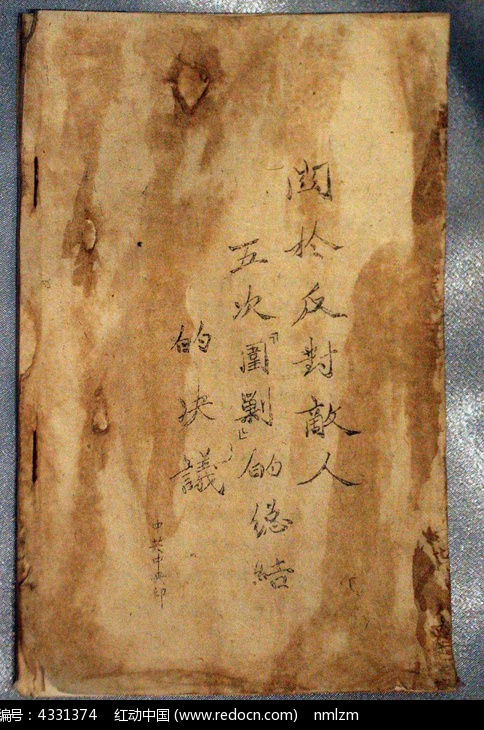 關於反對敵人
五次『圍剿』的總結
的決議
中共中央印
编号：4331374 红动中国 (www.redocn.com) nmlzm